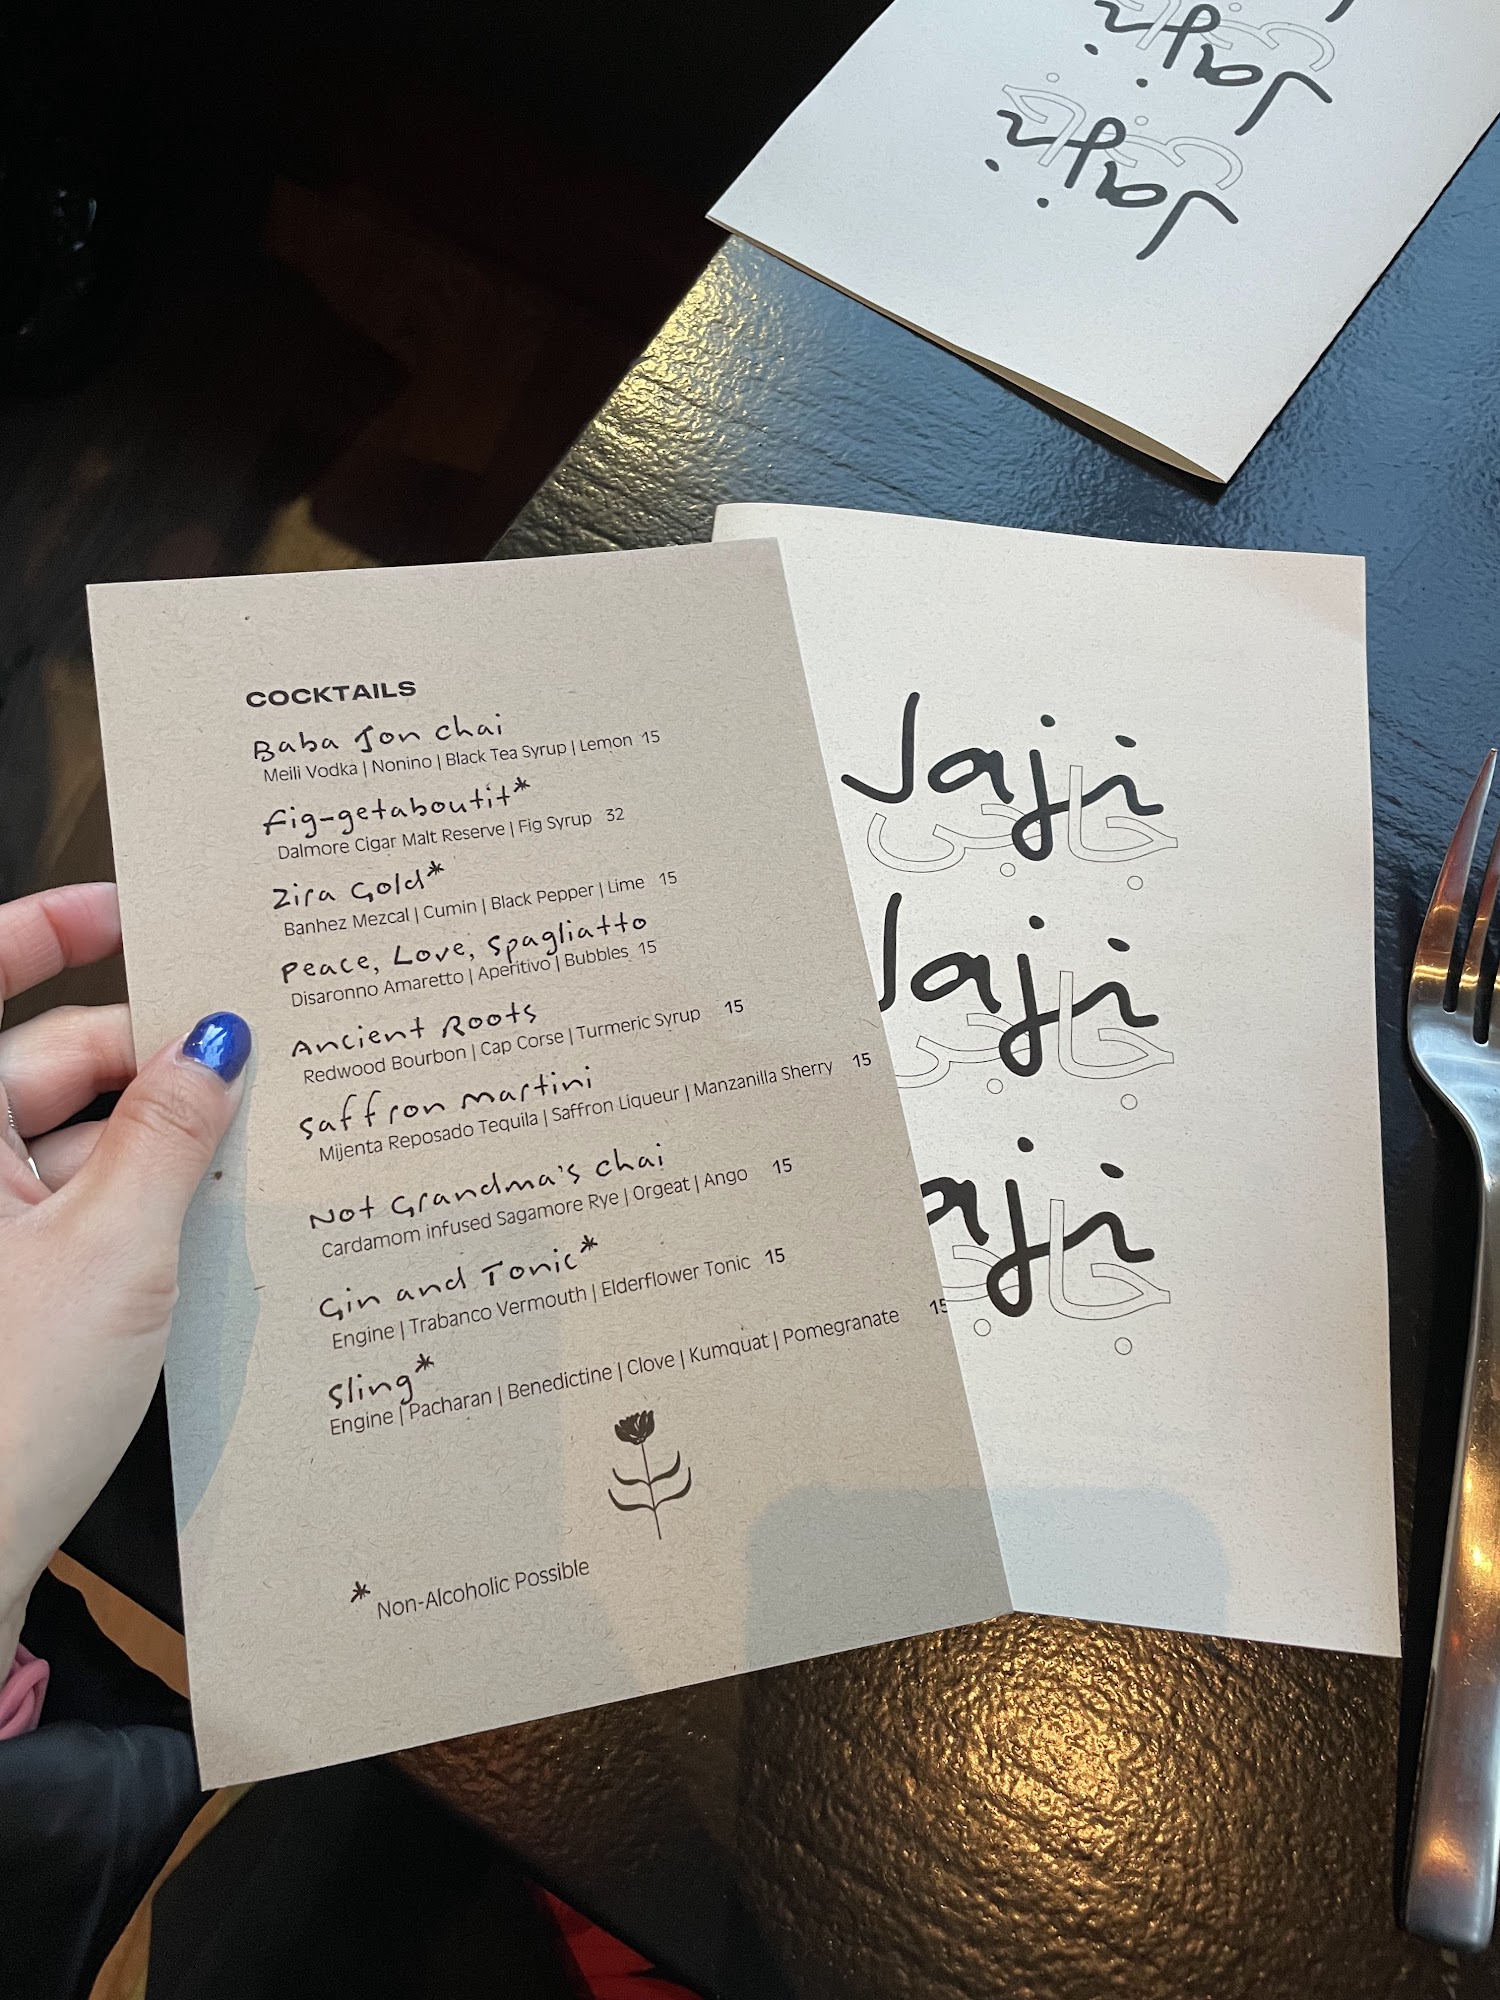 COCKTAILS
Baba Jon chai
Meili Vodka | Nonino | Black Tea Syrup | Lemon 15
fig-getaboutit*
Dalmore Cigar Malt Reserve | Fig Syrup 32
Zira Gold*
Banhez Mezcal | Cumin | Black Pepper | Lime 15
Peace, Love, Spagliatto
Disaronno Amaretto | Aperitivo | Bubbles 15
Ancient Roots
Redwood Bourbon | Cap Corse | Turmeric Syrup 15
Saffron martini
Mijenta Reposado Tequila | Saffron Liqueur | Manzanilla Sherry 15
Not Grandma's chai
Cardamom infused Sagamore Rye | Orgeat | Ango 15
Gin and Tonic*
Engine | Trabanco Vermouth | Elderflower Tonic 15
Sling*
Engine | Pacharan | Benedictine | Clove | Kumquat | Pomegranate 15
* Non-Alcoholic Possible
Jaji
جاجی
Jaji
جاجی
aji
جاج
Jaji
جاجی
Jaji